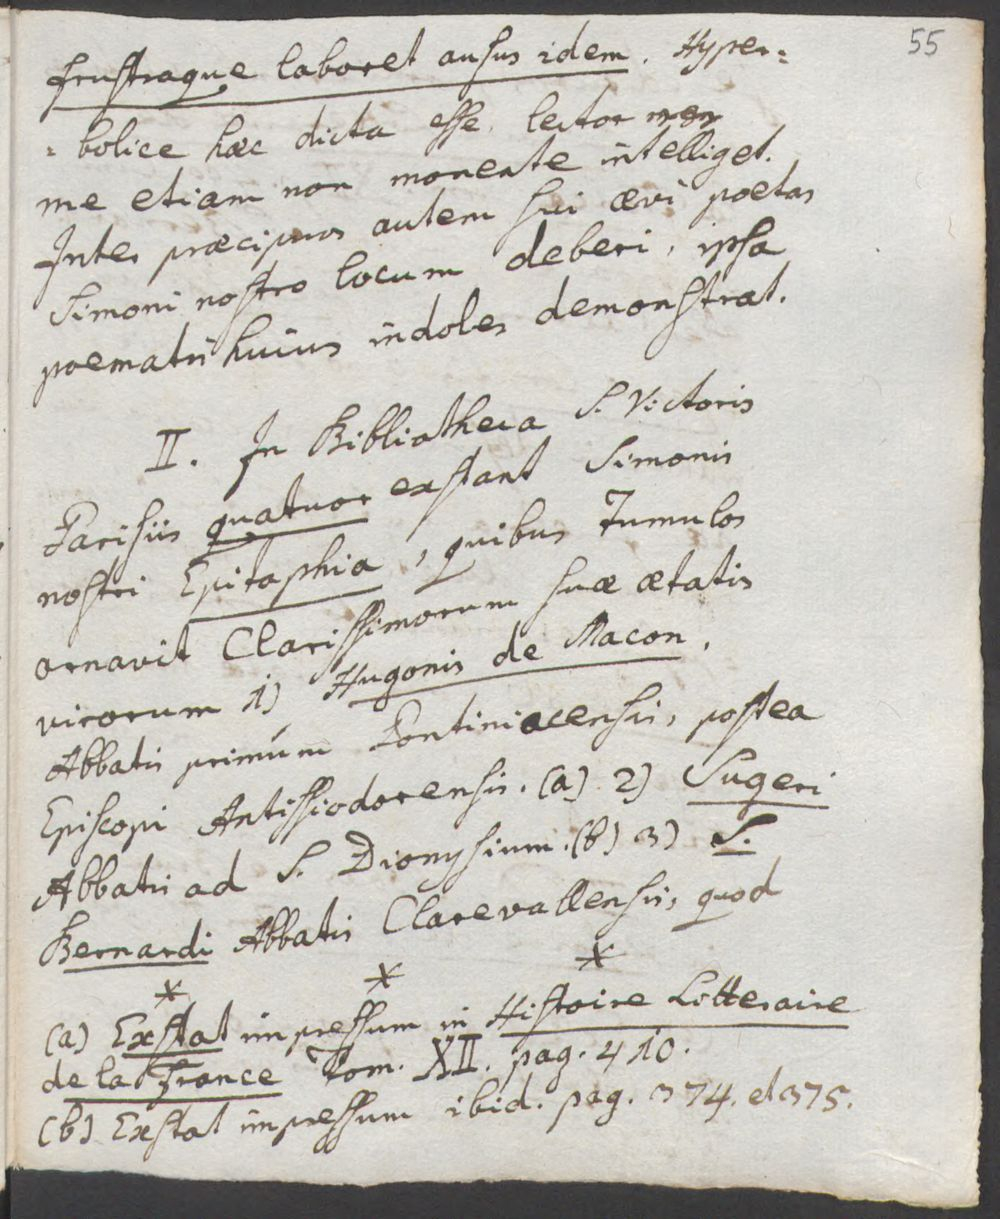 55
frustraque laboret ausus idem. Hyper=
= bolice hæc dicta esse, lector
me etiam non monente intelliget.
Inter præcipuos autem sui ævi poetas
Simoni nostro locum deberi, ipsa
poematis huius indoles demonstrat.
II. In Bibliotheca S. Victoris
Parisiis quatuor exstant Simonis
nostri Epitaphia, quibus Tumulos
ornavit Clarissimorum suæ ætatis
virorum 1) Hugonis de Macon,
Abbatis primúm Pontiniacensis, postea
Episcopi Antissiodorensis. (a) 2) Sugeri
Abbatis ad S. Dionysium. (b) 3) S.
Bernardi Abbatis Clarevallensis, quod
* * *
(a) Exstat impressum in Histoire Litteraire
de la France Tom. XII. pag. 410.
(b) Exstat impressum ibid. pag. 374. et 375.